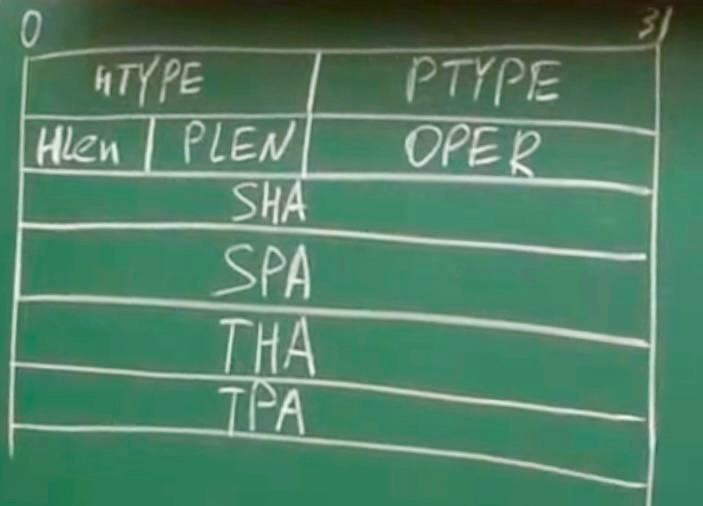 0 31
HTYPE PTYPE
HLen PLEN OPER
SHA
SPA
THA
TPA